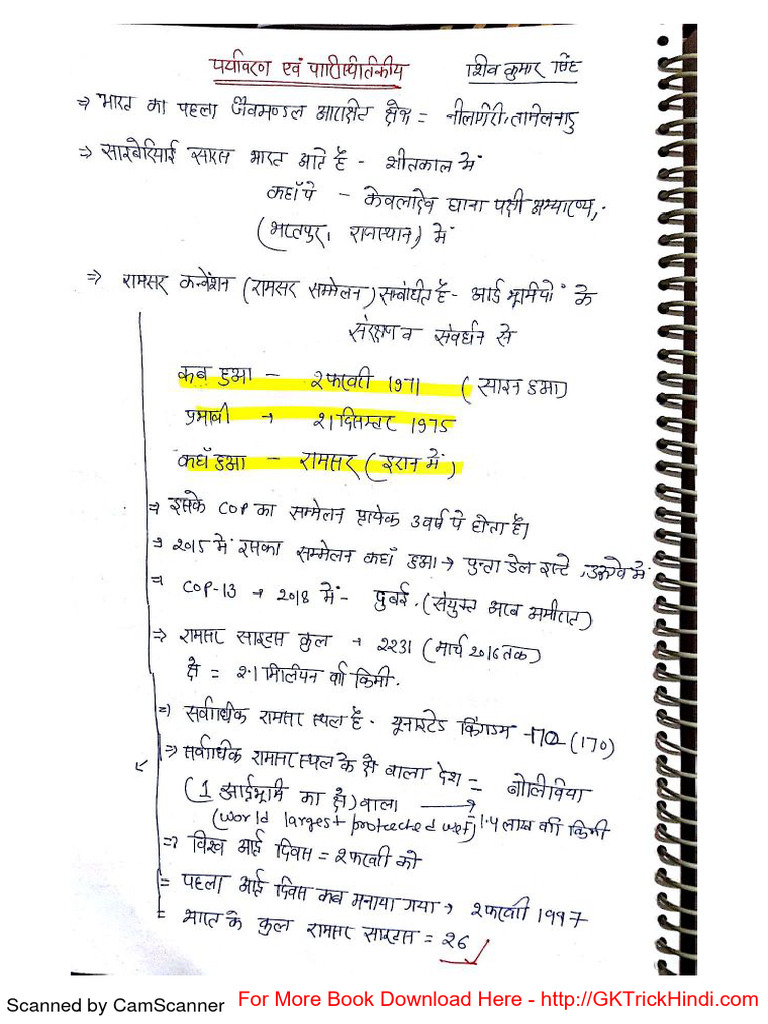 पर्यावरण एवं पारिस्थितिकीय शिव कुमार सिंह
⇒ भारत का पहला जैवमण्डल आरक्षित क्षेत्र = नीलगिरी, तमिलनाडु
⇒ साइबेरियाई सारस भारत आते हैं - शीतकाल में
कहाँ पे - केवलादेव घाना पक्षी अभ्यारण्य,
(भरतपुर, राजस्थान) में
⇒ रामसर कन्वेंशन (रामसर सम्मेलन) सम्बंधित है - आर्द्र भूमियों के
संरक्षण व संवर्धन से
कब हुआ - 2 फरवरी 1971 (साइन हुआ)
प्रभावी → 21 दिसम्बर 1975
कहाँ हुआ - रामसर (इरान में)
⇒ इसके COP का सम्मेलन प्रत्येक 3 वर्ष पे होता है।
→ 2015 में इसका सम्मेलन कहाँ हुआ → पुन्ता डेल इस्टे, उरुग्वे में
⇒ COP-13 → 2018 में - दुबई. (संयुक्त अरब अमीरात)
⇒ रामसर साइट्स कुल → 2231 (मार्च 2016 तक)
क्षे = 2.1 मिलियन वर्ग किमी.
⇒ सर्वाधिक रामसर स्थल है - यूनाइटेड किंगडम - 170 (170)
⇒ सर्वाधिक रामसर स्थल के क्षे वाला देश = बोलिविया
(1 आर्द्रभूमि का क्षे) वाला → 1.4 लाख वर्ग किमी
(world largest protected wet)
⇒ विश्व आर्द्र दिवस = 2 फरवरी को
= पहला आर्द्र दिवस कब मनाया गया → 2 फरवरी 1997
= भारत के कुल रामसर साइट्स = 26
Scanned by CamScanner
For More Book Download Here - http://GKTrickHindi.com